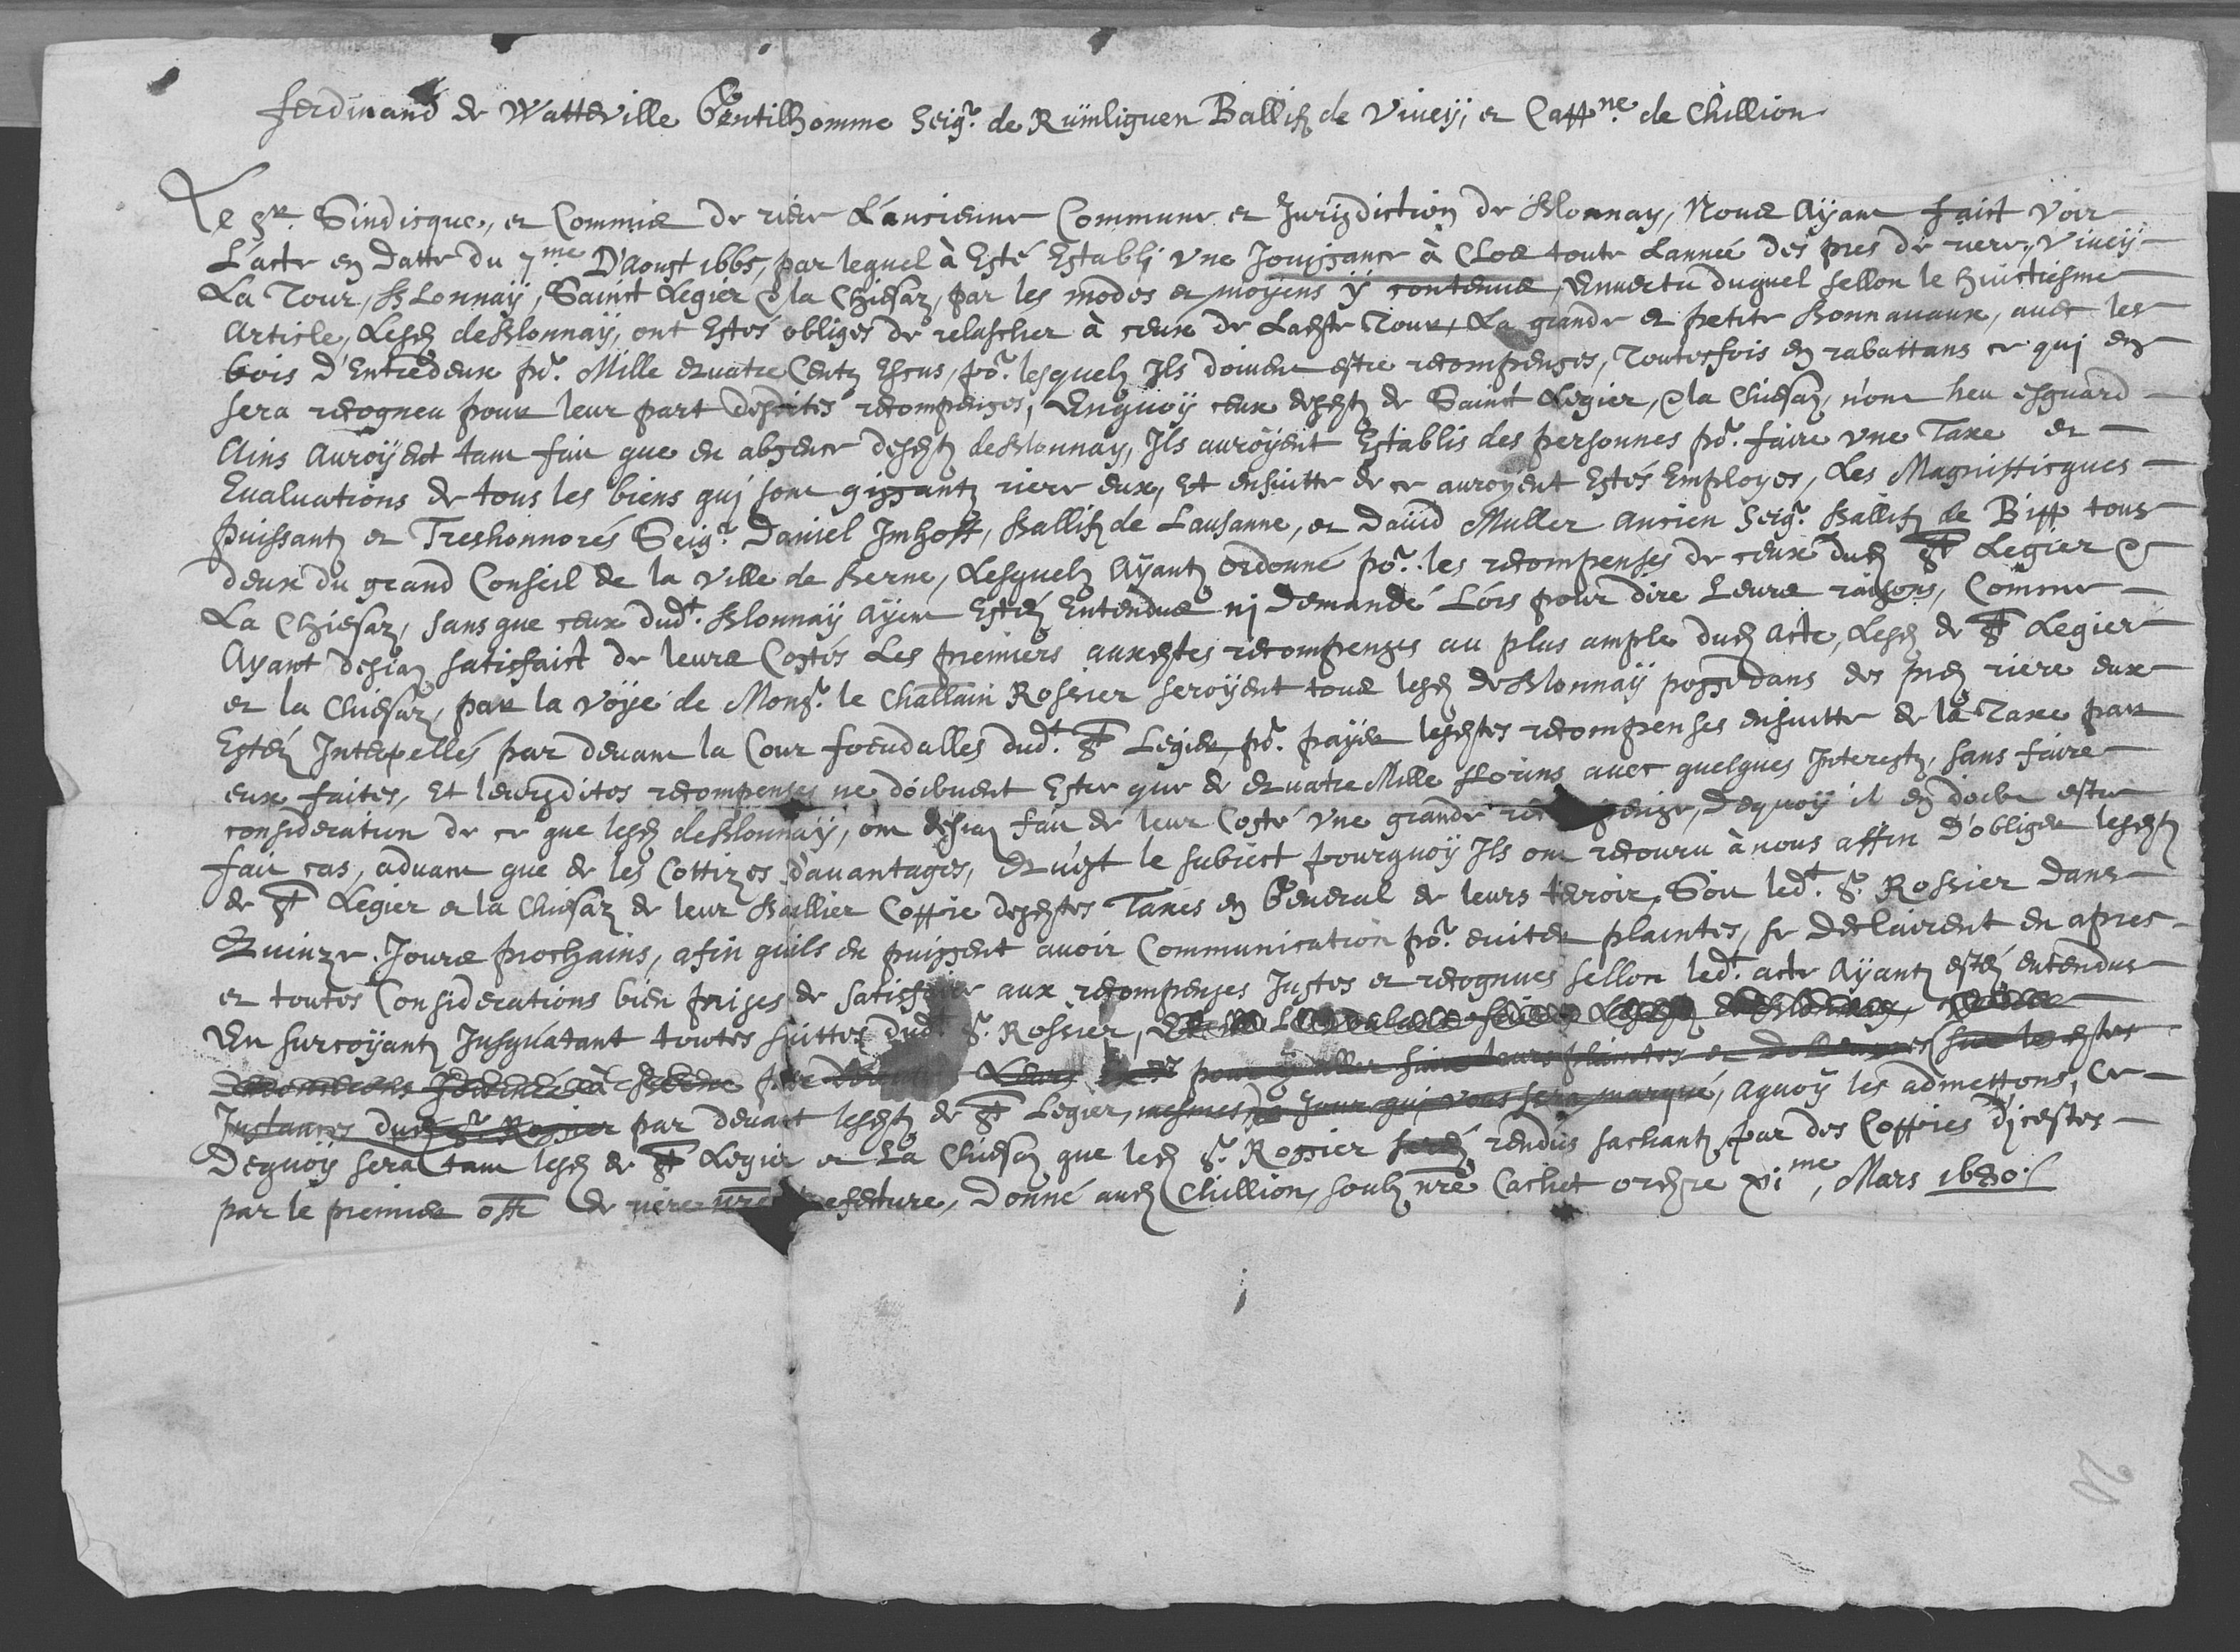 Ferdinand de Watteville Gentilhomme Seigr. de Rümliguen Ballif de Viveÿ, et Capne. de Chillion
Le Sr. Sindicque, et Commis de riere L'ancienne Commune et Jurisdiction de Blonnay, Nous Ayant faict Voir
L'acte en datte du 7me D'Aoust 1665, par lequel à Esté Establi vne Jouissance à Clos toute L'année des pres de riere, Viveÿ
La Tour, Blonnaÿ, Sainct Legier & la Chiesaz, par les modes et moÿens ÿ contenus, Envertu duquel sellon le huictiesme
Article, Lesd. de Blonnaÿ, ont Estés obligés de relascher à ceux de Ladte Tour, La grande et petite Bonnavaux, avec les
bois d'Entredeux pr. Mille Quatre Centz Escus, pr. lesquelz Ils doivent estre recompenses, Toutesfois en rabattans ce qui en
sera recogneu pour leur part desdites recompenses, Enquoÿ ceux desdtz de Sainct Legier, & la Chiesaz, n'ont heu esguard
Ains Auroÿent tant fait que en absence desdtz de Blonnay, Ils auroÿent Establis des personnes pr. faire vne Taxe et
Evaluations de tous les biens qui sont gissantz riere eux, Et ensuitte de ce auroyent Estés Employes, Les Magnifficques
puissantz et Treshonnorés Seigr. Daniel Imhoff, Ballif de Lausanne, et David Muller Ancien Seigr. Ballif de Bipp tous
deux du grand Conseil de la Ville de Berne, Lesquelz Ayantz ordonné pr. les recompenses de ceux dud. St Legier &
La Chiesaz, sans que ceux dudt. Blonnaÿ Ayent Estéz Entendus ni demandé Lóis pour dire Leurs raisons, Comme
Ayant desiaz satisfaict de leurs Costés Les premiers auxdtes recompenses au plus ample dud. Acte, Lesd. de St Legier
et la Chiesaz, par la Voÿe de Monsr. le Challain Rossier seroÿent tous lesd. de Blonnaÿ possedans des prez riere eux
Estéz Interpellés par devant la Cour foeudalles dudt. St Legier, pr. paÿer lesdtes recompenses ensuitte de la Taxe par
eux faites, Et leursdites recompenses ne doibvent Estre que de Quatre Mille florins avec quelques Interestz, sans faire
consideration de ce que lesd. de Blonnaÿ, ont desiaz fait de leur Costé vne grande recompense, dequoÿ il en doibt estre
fait cas, advant que de les Cottizes d'avantages, Qu'est le subiect pourquoÿ Ils ont recouru à nous affin D'obliger lesdtz
de St Legier et la Chiesaz de leur Baillier Coppie desdtes Taxes en General de leurs terroir, Soit ledt. Sr. Rossier dans
Quinze Jours prochains, afin quils en puissent avoir Communication pr. eviter plaintes, se declairent en apres
et toutes Considerations bien prises de satisfaire aux recompenses Justes et recognues sellon ledt. acte Ayantz estéz entendus
En surcoÿantz Jusquatant toutes suittes dudt Sr. Rossier,
pour y aller faire leurs plaintes et dolleances sur les dtes
Instances dud. Sr. Rossier par devant lesdtz de St Legier, mesmes Jour qui vous sera marqué, aquoÿ les admettons, Ce
Dequoÿ sera tant lesd. de St Legier et La Chiesaz que led. Sr. Rossier rendus sachantz par des Coppies d'icestes
par le premier off. de riere nre prefecture, Donné aud. Chillion, soubz nre Cachet ordre xime, Mars 1680.